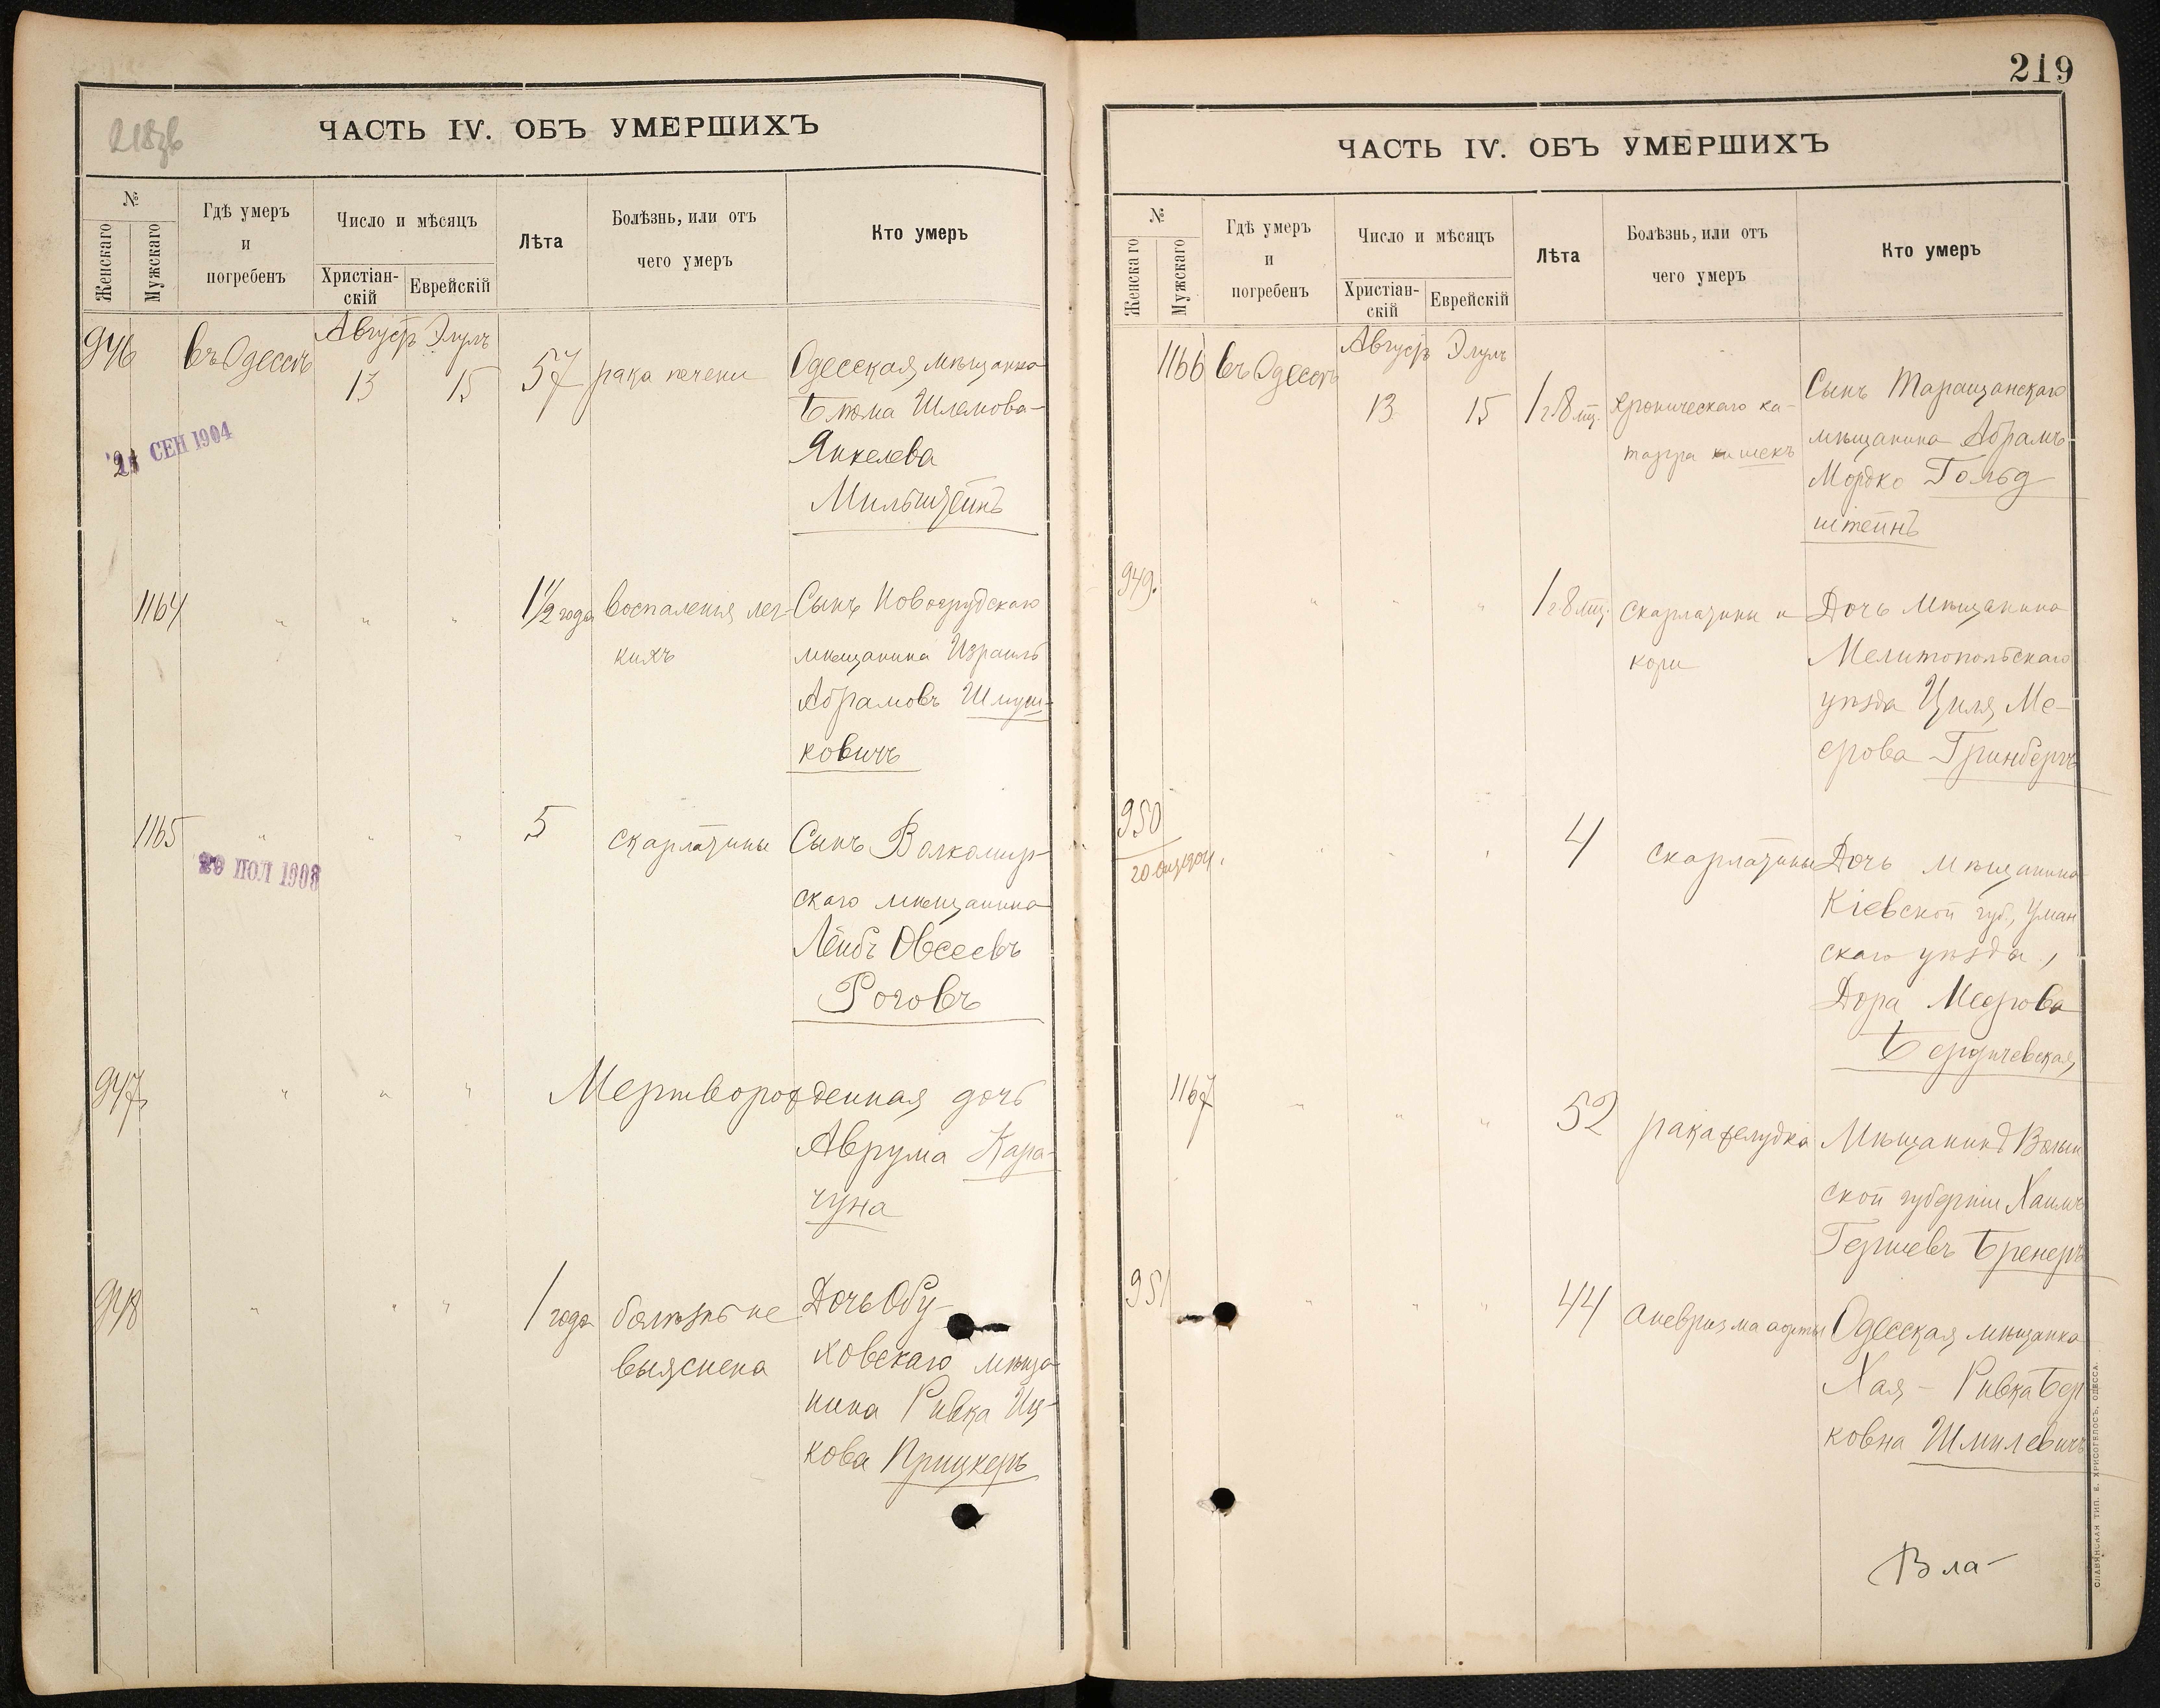 218зв
ЧАСТЬ IV. ОБЪ УМЕРШИХЪ
№
Женскаго
Мужскаго
Гдѣ умеръ
и
погребенъ
Число и мѣсяцъ
Христіан-
скій
Еврейскій
Лѣта
Болѣзнь, или отъ
чего умеръ
Кто умеръ
Августъ Элулъ
946 въ Одессѣ 13 15 57 рака печени Одесская мѣщанка
Бѣлна Шлемова-
Янкелева
Мильштейнъ
СЕН 1904
1164 " " " 1½ года воспаленія лег- Сынъ Новогрудскаго
кихъ мѣщанина Израиль
Абрамовъ Шмуш-
ковичъ
1165 " " " 5 скарлатины Сынъ Волкомир-
скаго мѣщанина
Лейбъ Овсеевъ
Роговъ
20 ІЮЛ 1908
947 " " " Мертворожденная дочь
Аврума Кара-
чуна
948 " " " 1 года болѣзнь не Дочь Обу-
выяснена ховскаго мѣща-
нина Ривка Иц-
кова Прицкеръ
219
ЧАСТЬ IV. ОБЪ УМЕРШИХЪ
№
Женскаго
Мужскаго
Гдѣ умеръ
и
погребенъ
Число и мѣсяцъ
Христіан-
скій
Еврейскій
Лѣта
Болѣзнь, или отъ
чего умеръ
Кто умеръ
Августъ Элулъ
1166 въ Одессѣ 13 15 1 г 8 мц. хроническаго ка- Сынъ Таращанскаго
тарра кишекъ мѣщанина Абрамъ
Мордко Гольд
штейнъ
949. " " " 1 г 8 мц. Скарлатины и Дочь мѣщанина
кори Мелитопольскаго
уѣзда Циля Ме-
ерова Гринбергъ
950 " " " 4 скарлатины Дочь мѣщанина
Кіевской губ., Уман
скаго уѣзда,
Дора Меерова
Бердичевская
1167 " " " 52 рака желудка Мѣщанинъ Волын
ской губерніи Хаимъ
Гершевъ Бренеръ
951 " " " 44 аневризма аорты Одесская мѣщанка
Хая - Ривка Бер
ковна Шмилевичъ
Вла-
СЛАВЯНСКАЯ ТИП. Е. ХРИСОГЕЛОСЪ, ОДЕССА.